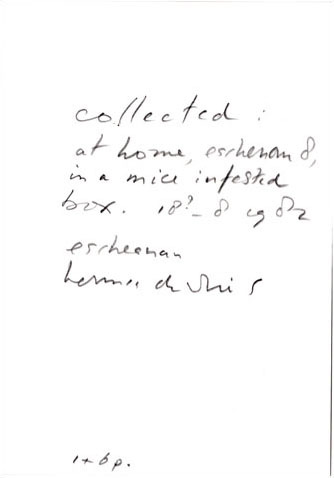 collected :
at home, eschenau 8,
in a mice infested
box. 18?_ 8 1982
eschenau
herman de vries
1+6p.